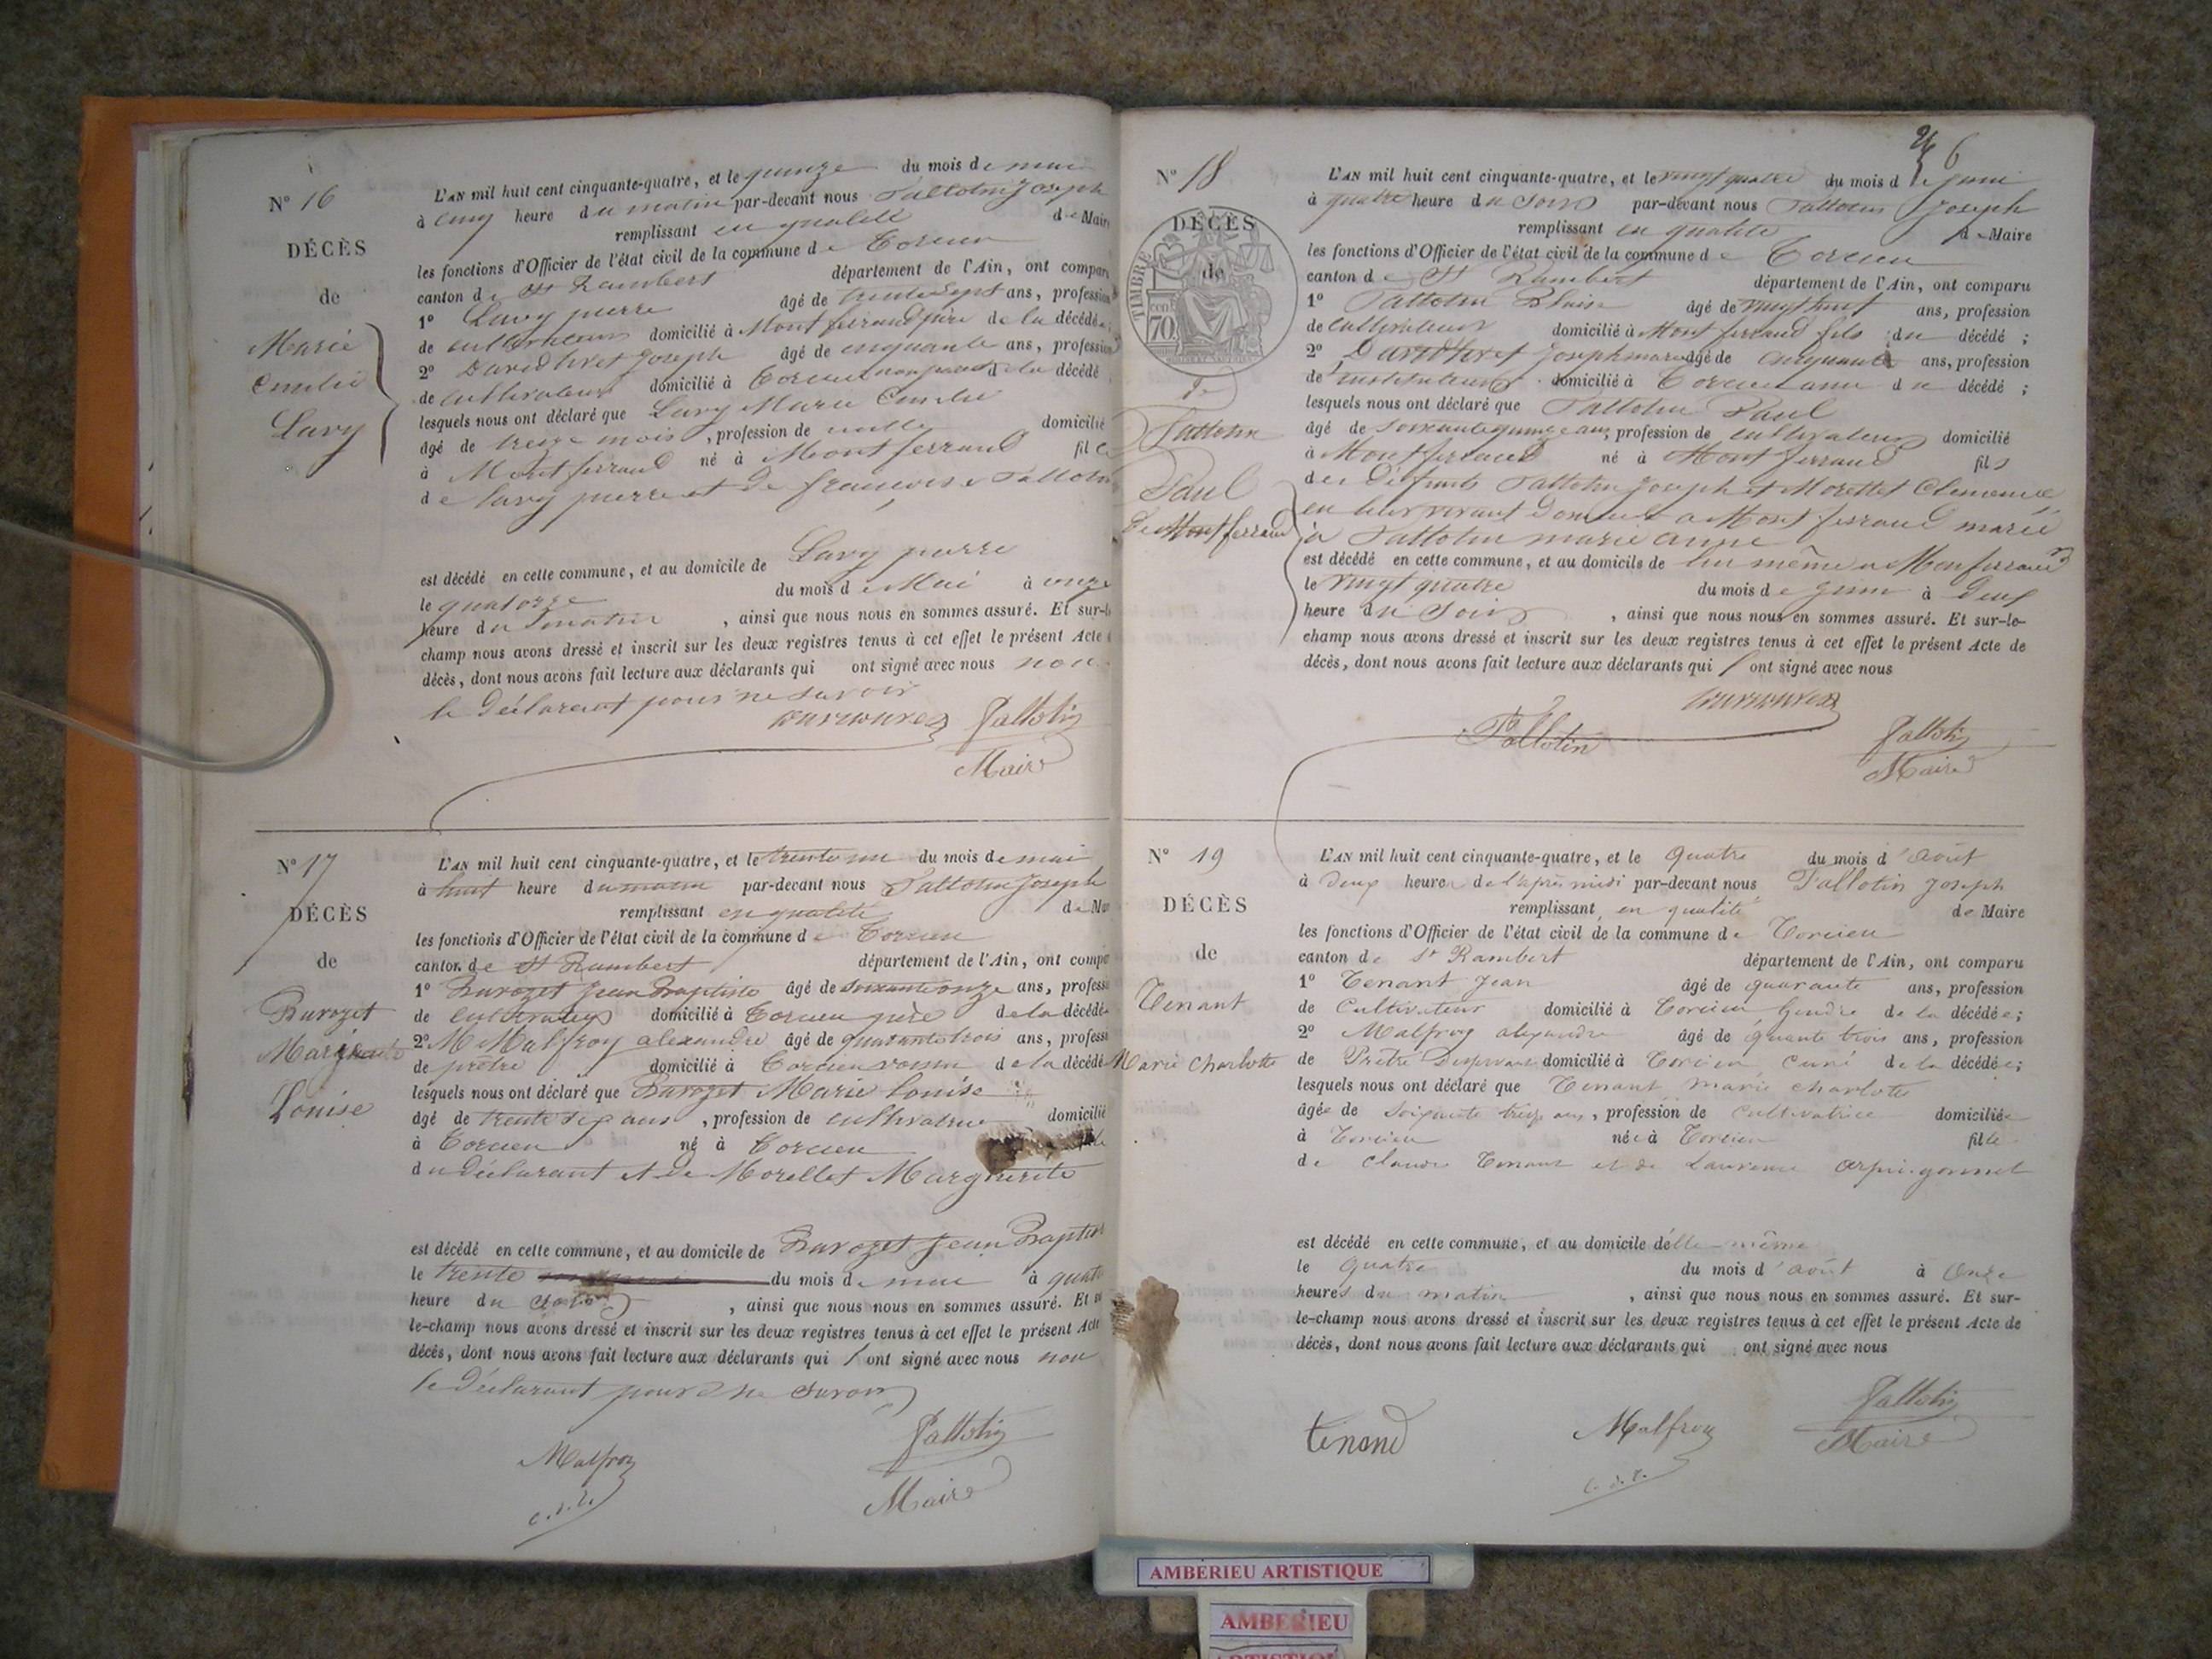 N° 16
DÉCÈS
de
Marie
Lavy
L'AN mil huit cent cinquante-quatre, et le quinze du mois de mai
à cinq heure du matin par-devant nous Pallotin Joseph
remplissant en qualité de Maire
les fonctions d'Officier de l'état civil de la commune de Torcieu
canton de St Rambert département de l'Ain, ont comparu
1° Lavy pierre âgé de trente sept ans, profession
de cultivateur domicilié à Montferrand père de la décédée
2° joseph âgé de cinquante ans, profession
de cultivateur domicilié à Torcieu de la décédé
lesquels nous ont déclaré que Lavy Marie
âgé de treize mois, profession de nulle domicilié
à Montferrand né à Montferrand fille
de Lavy pierre et de françoise Pallotin
est décédé en cette commune, et au domicile de Lavy pierre
le quatorze du mois de Mai à onze
heure du matin, ainsi que nous nous en sommes assuré. Et sur-le-
champ nous avons dressé et inscrit sur les deux registres tenus à cet effet le présent Acte
décès, dont nous avons fait lecture aux déclarants qui ont signé avec nous non
le déclarant pour ne savoir
Pallotin
Maire
N° 17
DÉCÈS
de
Buvozet
Louise
L'AN mil huit cent cinquante-quatre, et le trente un du mois de mai
à huit heure du matin par-devant nous Pallotin Joseph
remplissant en qualité de Maire
les fonctions d'Officier de l'état civil de la commune de Torcieu
canton de St Rambert département de l'Ain, ont comparu
1° Buvozet Jean Baptiste âgé de soixante onze ans, profession
de cultivateur domicilié à Torcieu père de la décédée
2° M Malfroy alexandre âgé de quarante trois ans, profession
de prêtre domicilié à Torcieu voisin de la décédé
lesquels nous ont déclaré que Buvozet Marie Louise
âgé de trente sep ans, profession de cultivatrice domicilié
à Torcieu né à Torcieu
du déclarant et de Morellet Marguerite
est décédé en cette commune, et au domicile de Buvozet Jean Baptiste
le trente du mois de mai à quatre
heure du soir, ainsi que nous nous en sommes assuré. Et sur-
le-champ nous avons dressé et inscrit sur les deux registres tenus à cet effet le présent Acte
décès, dont nous avons fait lecture aux déclarants qui ont signé avec nous non
le déclarant pour ne savoir
Malfroy
Pallotin
Maire
6
N° 18
DÉCÈS
de
TIMBRE
70
Pallotin
Paul
de Montferrand
L'AN mil huit cent cinquante-quatre, et le vingt quatre du mois de juin
à quatre heure du soir par-devant nous Pallotin Joseph
remplissant en qualité de Maire
les fonctions d'Officier de l'état civil de la commune de Torcieu
canton de St Rambert département de l'Ain, ont comparu
1° Pallotin Blaise âgé de vingt huit ans, profession
de cultivateur domicilié à Montferrand fils du décédé;
2° joseph marie âgé de cinquante ans, profession
de instituteur domicilié à Torcieu ami du décédé;
lesquels nous ont déclaré que Pallotin Paul
âgé de soixante quinze ans, profession de cultivateur domicilié
à Montferrand né à Montferrand fils
des défunts Pallotin Joseph et Morettet
en leur vivant domicilié a Montferrand marié
à Pallotin marie anne
est décédé en cette commune, et au domicile de lui même a Monferrand
le vingt quatre du mois de juin à deux
heure du soir, ainsi que nous nous en sommes assuré. Et sur-le-
champ nous avons dressé et inscrit sur les deux registres tenus à cet effet le présent Acte de
décès, dont nous avons fait lecture aux déclarants qui ont signé avec nous
Pallotin
Pallotin
Maire
N° 19
DÉCÈS
de
Tenant
Marie Charlotte
L'AN mil huit cent cinquante-quatre, et le quatre du mois d'août
à deux heure de l'après midi par-devant nous Pallotin Joseph
remplissant en qualité de Maire
les fonctions d'Officier de l'état civil de la commune de Torcieu
canton de St Rambert département de l'Ain, ont comparu
1° Tenant Jean âgé de quarante ans, profession
de Cultivateur domicilié à Torcieu Gendre de la décédée;
2° Malfroy alexandre âgé de quarante trois ans, profession
de Prêtre Desservant domicilié à Torcieu curé de la décédée;
lesquels nous ont déclaré que Tenant marie charlotte
âgée de soixante treize ans, profession de Cultivatrice domiciliée
à Torcieu née à Torcieu fille
de Claude Tenant et de Laurence
est décédé en cette commune, et au domicile d'elle-même
le quatre du mois d'août à Onze
heures du matin, ainsi que nous nous en sommes assuré. Et sur-
le-champ nous avons dressé et inscrit sur les deux registres tenus à cet effet le présent Acte de
décès, dont nous avons fait lecture aux déclarants qui ont signé avec nous
tenand
Malfroy
Pallotin
Maire
AMBÉRIEU ARTISTIQUE
AMBERIEU
ARTISTIQUE